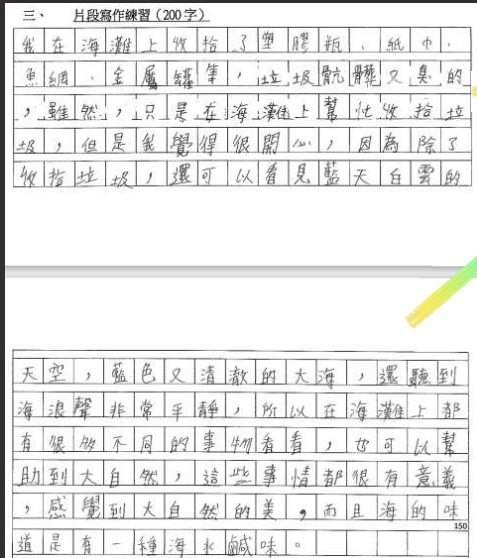 三、 片段寫作練習(200字)
我在海灘上收拾了塑膠瓶、紙巾、
魚網、金屬罐筆,垃圾骯髒又臭的
,雖然,只是在海灘上幫忙收拾垃
圾,但是我覺得很開心,因為除了
收拾垃圾,還可以看見藍天白雲的
天空,藍色又清澈的大海,還聽到
海浪聲非常平靜,所以在海灘上都
有很多不同的事物看看,也可以幫
助到大自然,這些事情都很有意義
,感覺到大自然的美,而且海的味
150
道是有一種海水鹹味。